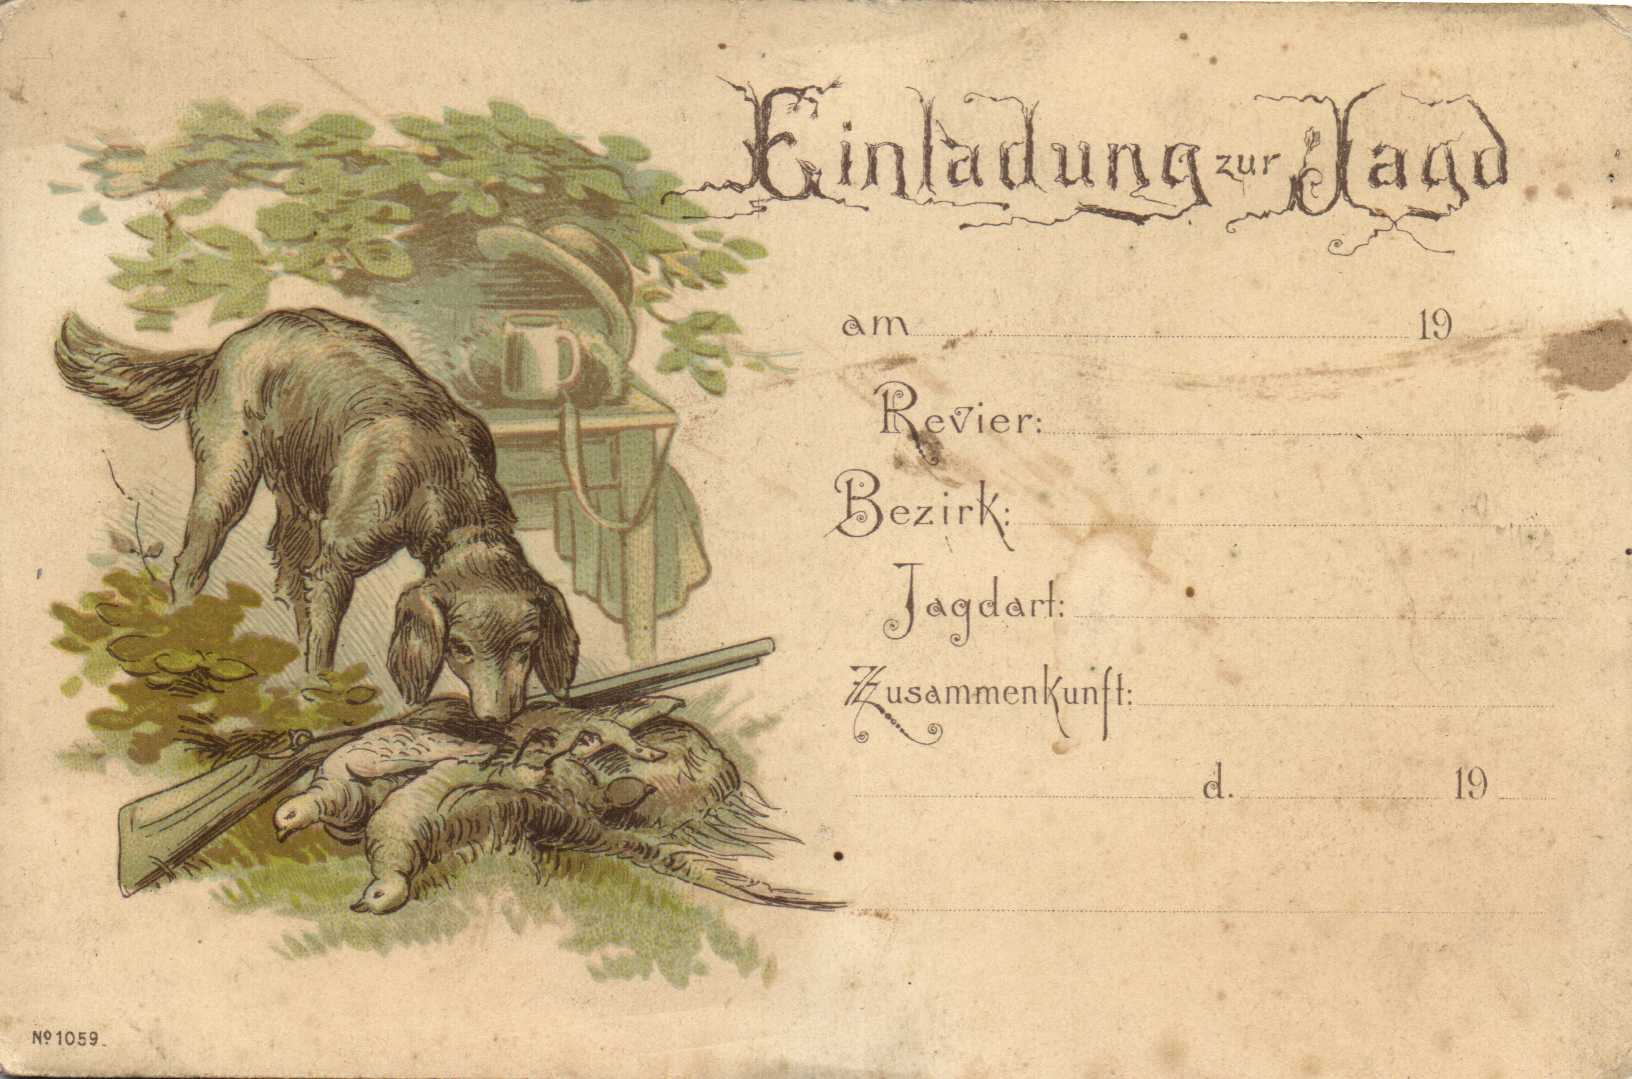 Einladung zur Jagd
am 19
Revier:
Bezirk:
Jagdart:
Zusammenkunft:
d. 19
Nº 1059.